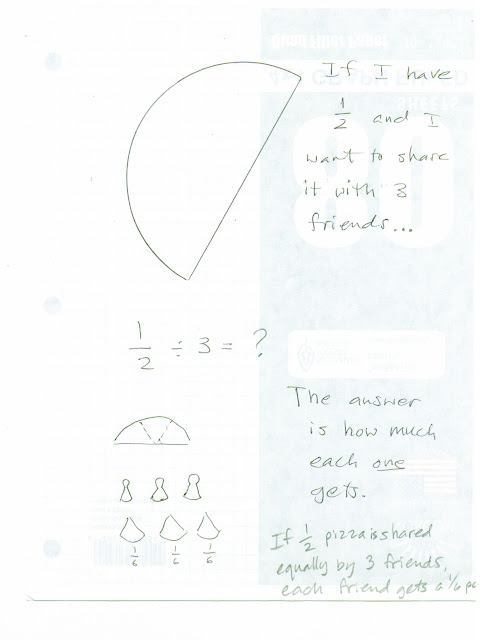 If I have
1/2 and I
want to share
it with 3
friends...
1/2 ÷ 3 = ?
The answer
is how much
each one
gets.
1/6 1/6 1/6
If 1/2 pizza is shared
equally by 3 friends,
each friend gets a 1/6